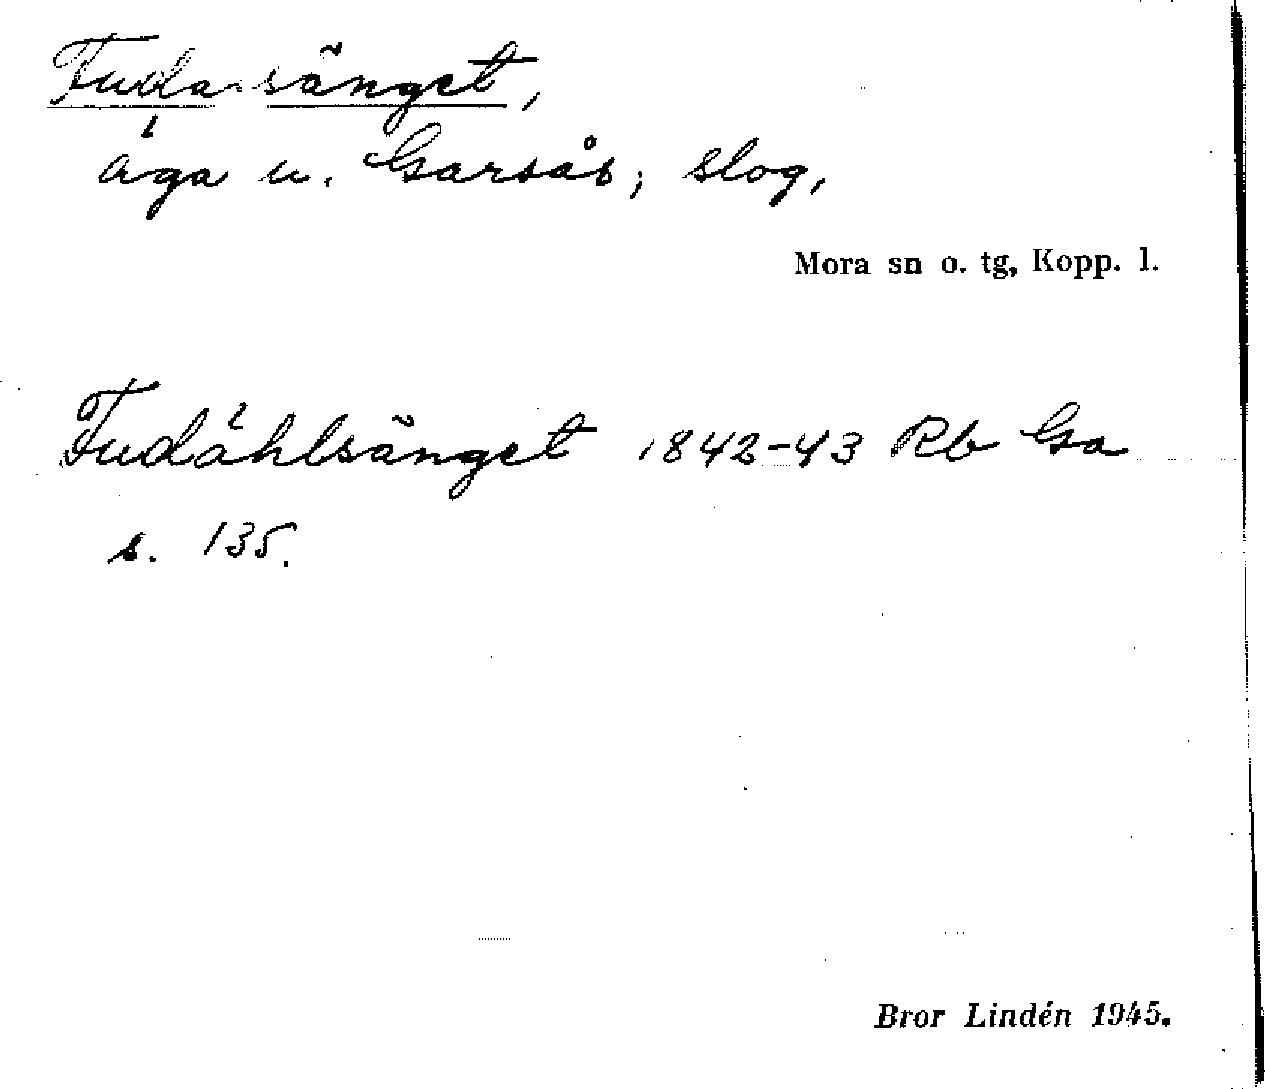 Fuda-sänget,
äga u. Garsås; slog,
Mora sn o. tg, Kopp. l.
Fudåhlsänget 1842-43 Rb Ga
s. 135.
Bror Lindén 1945.